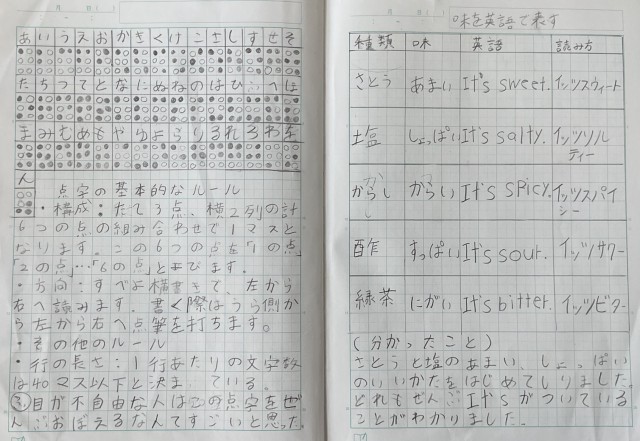 あいうえおかきくけこさしすせそ
たちつてとなにぬねのはひふへほ
まみむめもやゆよらりるれろわを
ん
点字の基本的なルール
・構成：たて3点、横2列の計
6つの点の組み合わせで1マスと
なります。この6つの点を「1の点」
「2の点」…「6の点」と呼びます。
・方向：すべよ横書きで、左から
右へ読みます。書く際はうら側か
ら左から右へ点筆を打ちます。
・その他のルール
・行の長さ：1行あたりの文字数
は40マス以下と決まっている。
③目が不自由な人はこの点字をぜ
んぶおぼえるなんてすごいと思った。
味を英語で表す
種類 味 英語 読み方
さとう あまい It's sweet. イッツスウィート
塩 しょっぱい It's salty. イッツソルティー
からし からい It's spicy. イッツスパイシー
酢 すっぱい It's sour. イッツサワー
緑茶 にがい It's bitter. イッツビター
(分かったこと)
さとうと塩のあまい、しょっぱい
のいいかたをはじめてしりました
どれもぜんぶIt'sがついている
ことがわかりました。